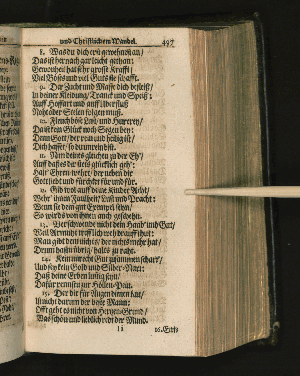 und Christlichem Wandel. 497
8. Was du dich erst gewehnest an/
Das ist hernach gar leicht gethan:
Gewonheit hat sehr grosse Krafft/
Viel Böses und viel Guts sie schafft.
9. Der Zucht und Masse dich befleiß/
In deiner Kleidung/ Tranck und Speiß:
Auff Hoffart und auff Uberfluß
Noht oder Seelen folgen muß.
10. Fleuch böse Lust/ und Hurerey/
Daß kein Glück noch Segen bey:
Denn Gott/ der rein und heilig ist/
Dich hasset/ so du unrein bist.
11. Nim deines gleichen zu der Eh/
Auff daß es dir stets glücklich geh:
Gottliebt und fürchtet für und für.
12. Gib nicht auff deine Kinder Acht/
Wehr ihnen Faulheit/ Lust und Pracht:
Wenn sie dem gut Exempel sehn/
So wirds von ihnen auch geschehn.
13. Verschwende nicht dein Haab und Gut/
Man gibt dem nichts/ der nichts mehr hat/
14. Kein unrecht Gut zusammen scharr/
Und sey kein Gold und Silber-Narr:
Daß deine Erben lustig seyn/
Dafür rennst du zur Höllen-Pein.
15. Der dir für Augen dienen kan/
Ist nicht darum der beste Mann:
Offt geht es nicht von Hertzen-Grund/
Was schön und lieblich redt der Mund.
Ii 16. Entz